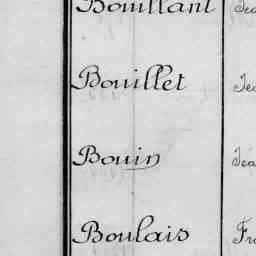 Bouillant
Bouillet
Bouin
Boulais